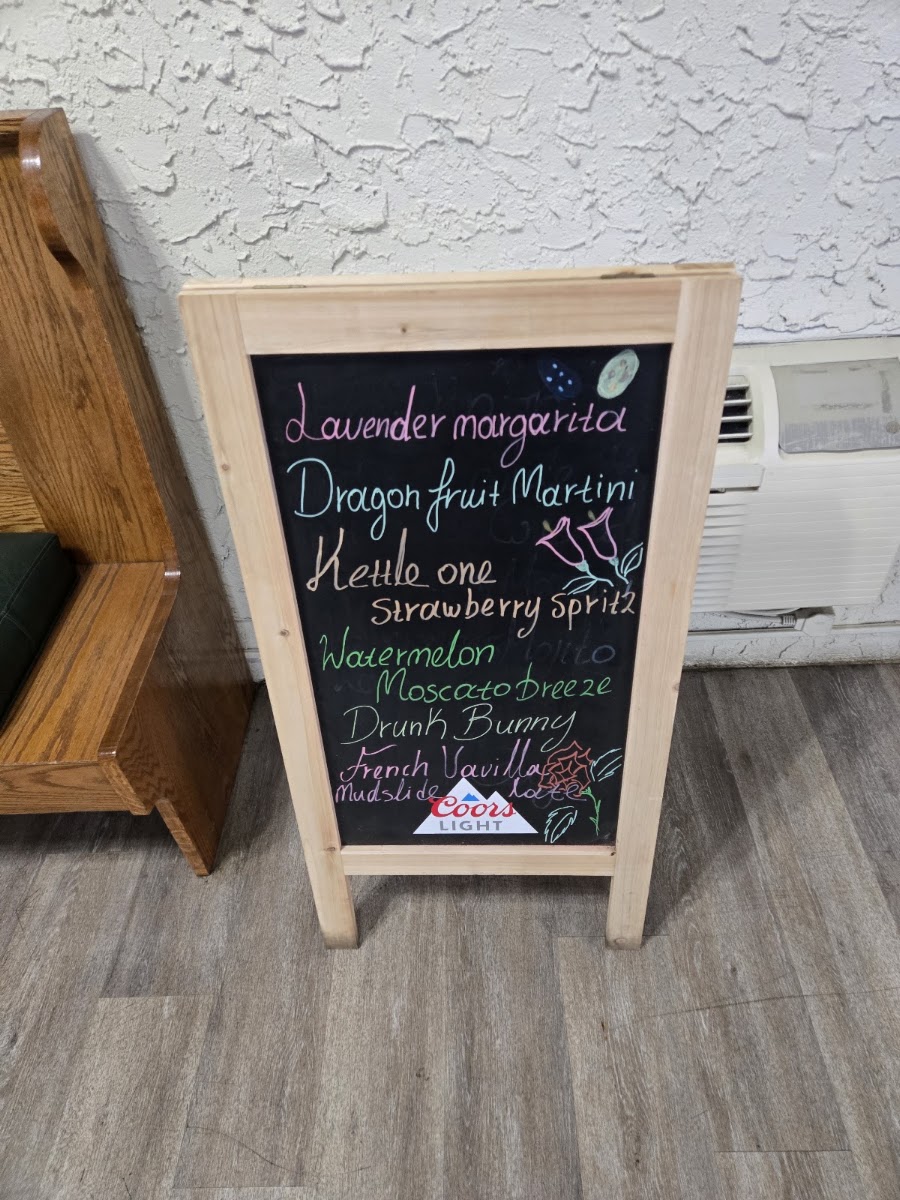 Lavender margarita
Dragon fruit Martini
Kettle one
Strawberry Spritz
Watermelon
Moscato breeze
Drunk Bunny
French Vavilla
Mudslide late
Coors
LIGHT